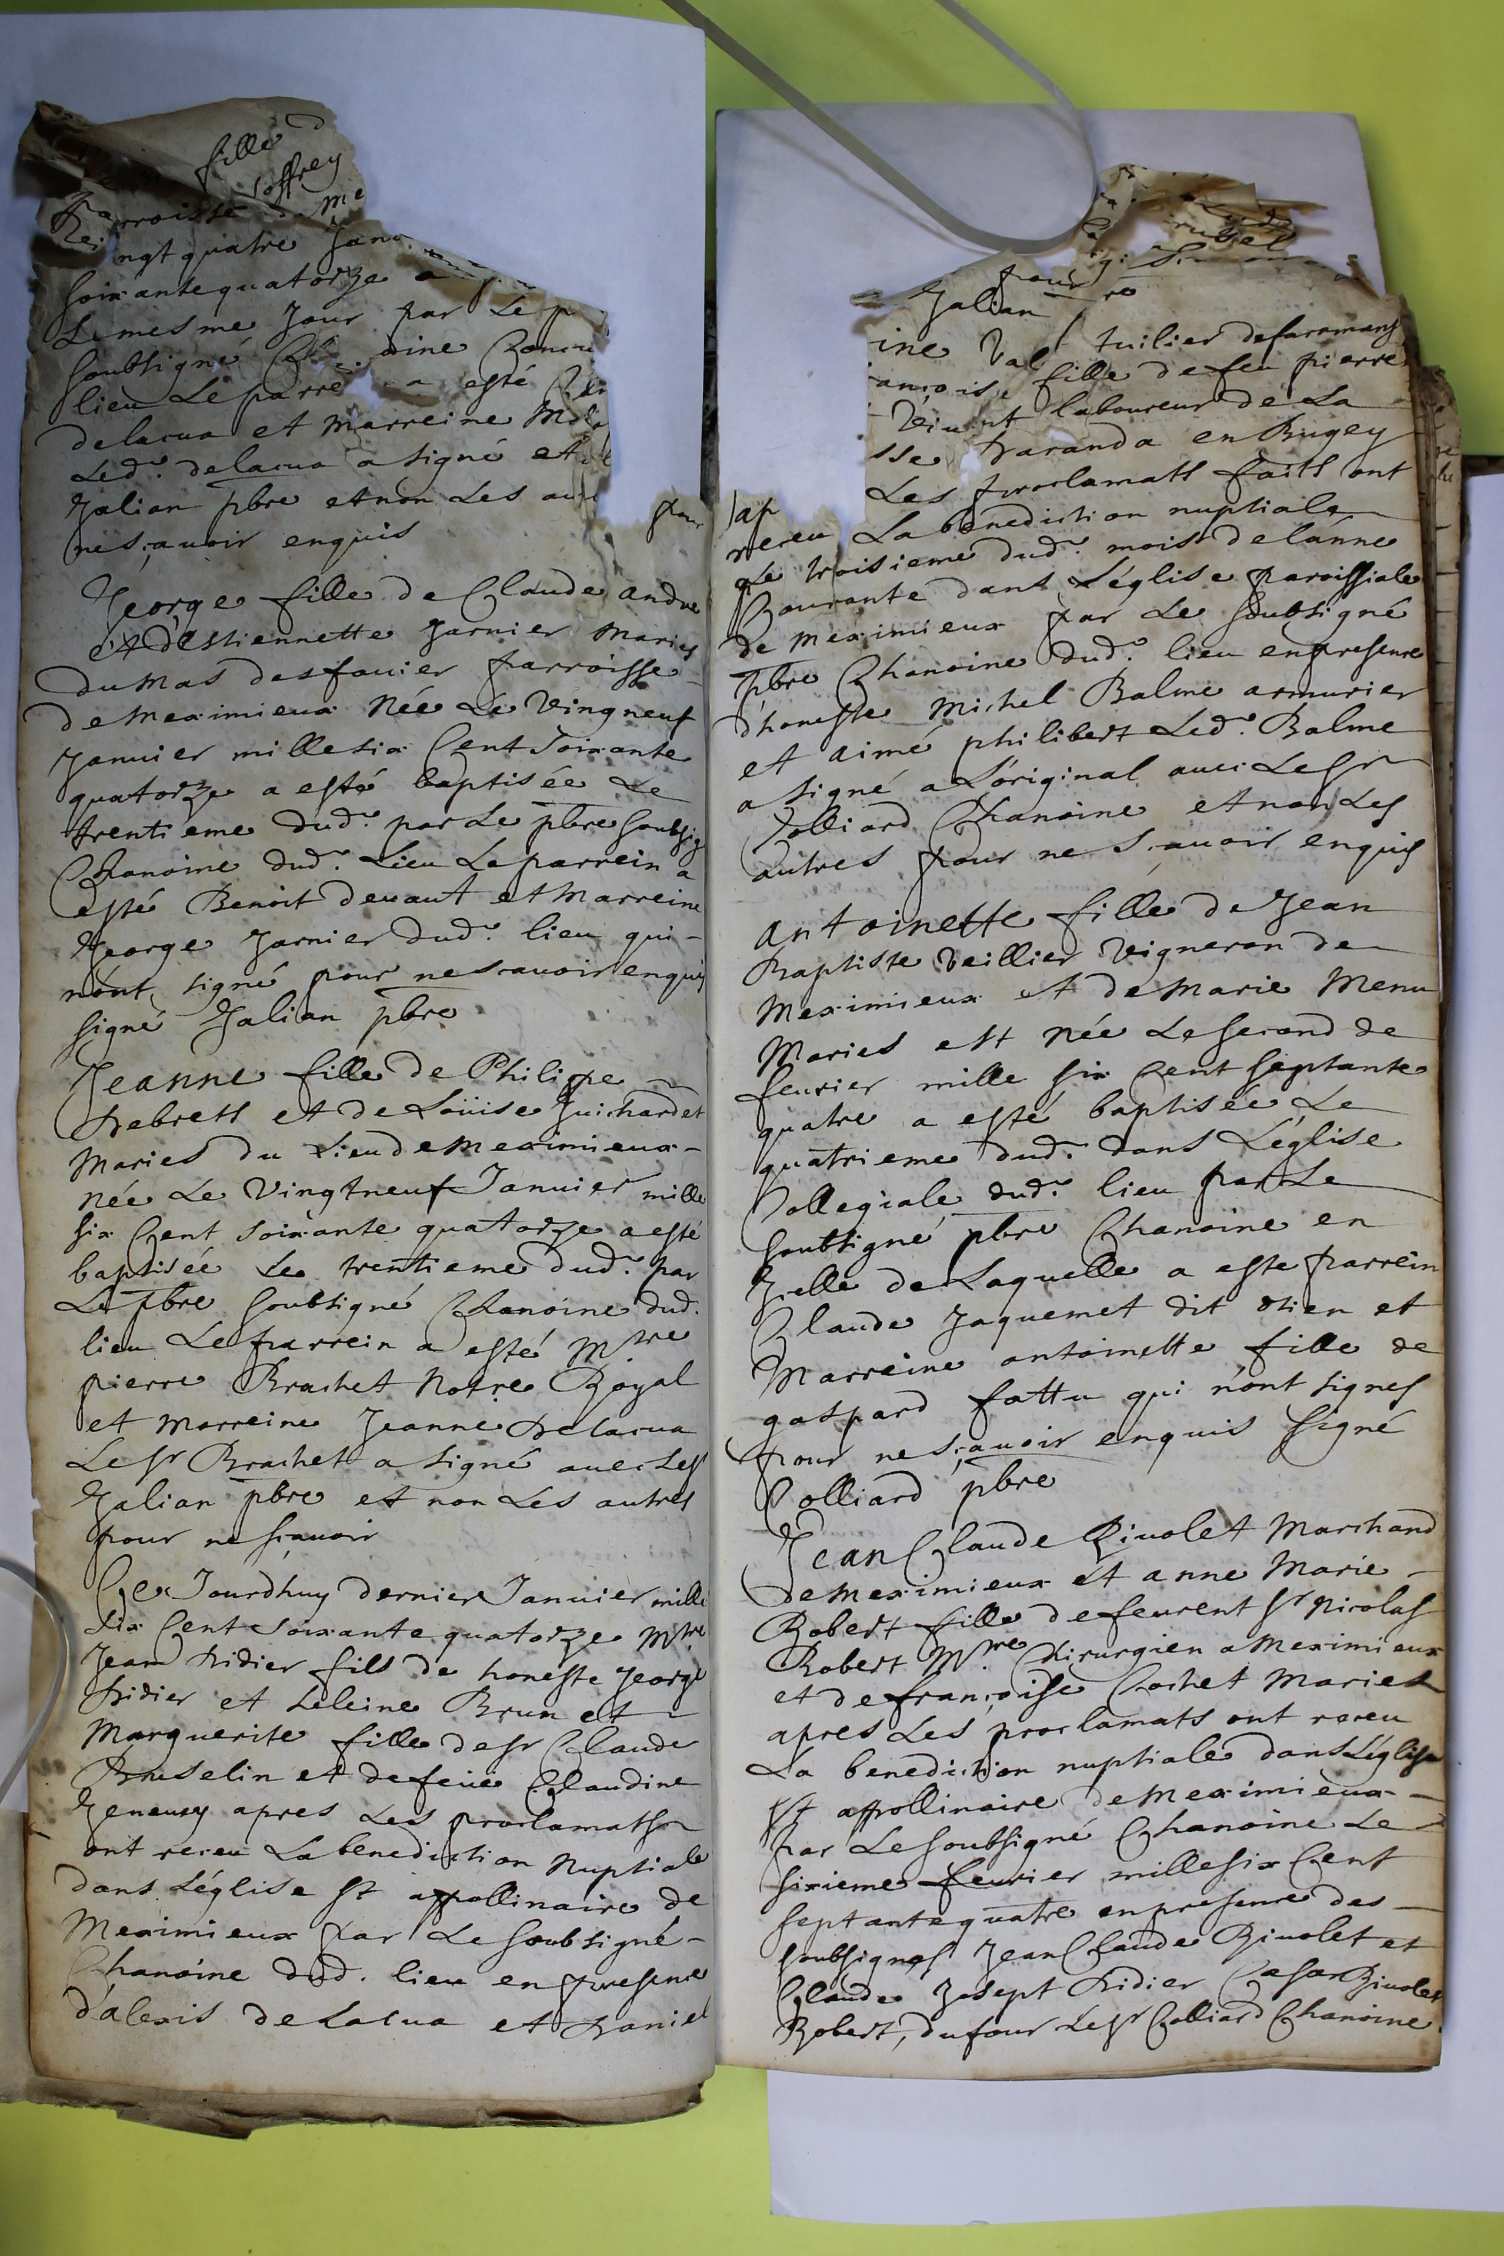 fille d
Joffrey
parroisse de me
ngt quatre Janv
soixante quatorze a
Le mesme Jour par Le p
soubsigné Ch oine
lieu Le parre a esté
delacua et marreine
Led.t delacua a signé et
Jalian pbre et non Les au pour
ne sçavoir enquis
George fille de Claude andre
et d'Estiennette Jarnier maries
du mas desfavier parroisse
de meximieux Née Le Vingneuf
Janvier mille six Cent Soixante
quatorze a esté baptisée Le
trentieme dud.t par Le pbre soubsig
Chanoine dud.t Lieu Le parrein a
esté Benoit devaut et Marreine
George Jarnier dud.t lieu qui -
n'ont signé pour ne scavoir enquis
signé Jalian pbre
Jeanne fille de Philippe
debrett et de Loüise Guichardet
Maries du Lieu de Meximieux -
née Le Vingtneuf Janvier mille
six Cent soixante quatorze a esté
baptisée Le trentieme dud.t par
Le pbre soubsigné Chanoine dud.
lieu Le parrein a esté Mtre
pierre Brachet Notre Royal
et Marreine Jeanne Delacua
Le Sr Brachet a signé avec Les
Jalian pbre et non Les autres
pour ne sçavoir
Ce Jourdhuy dernier Janvier mille
six Cent soixante quatorze Mtre
Jean Didier fils de honeste George
Didier et heleine Brun et
Marguerite fille de sr Claude
Buselin et de feüe Claudine
Geneusy apres Les proclamatts
ont receu La benediction Nuptiale
dans L'église st appollinaire de
Meximieux par Le soubsigné -
Chanoine dud. lieu en presence
d'alexis de Lacua et daniel
pour
Jalian
ine Val tuilier de faramans
ançoise fille de feu pierre
Vivant laboureur de La
sse Varanda en Bugey
ap Les proclamatts faitts ont
receu La benediction nuptiale
Le troisieme dud.t mois de lánne
Courante dans L'église paroissiale
de meximieux par Le soubsigné
pbre Chanoine dud.t lieu en presence
d'honeste Michel Balme armurier
et aimé philibert Led.t Balme
a signé a L'original avec Le Sr
Colliard Chanoine et non Les
autres pour ne sçavoir enquis
Antoinette fille de Jean
Baptiste Veillier Vigneron de
Meximieux et de Marie Menu
Maries est née Le second de
fevrier mille six Cent septante
quatre a esté baptisée Le
quatrieme dud.t dans L'église
Collegiale dud.t lieu par Le
soubsigné pbre Chanoine en
Jcelle de Laquelle a este parrein
Claude Jaquemet dit otien et
Marreine antoinette fille de
gaspard fattu qui n'ont signes
pour ne sçavoir enquis signé
Colliard pbre
Jean Claude Rivolet Marchand
de Meximieux et anne Marie -
Robert fille de feurent Sr Nicolas
Robert Mtre Chirurgien a Meximieux
et de françoise Cochet Maries
apres Les proclamats ont receu
La benediction nuptiale dans L'église
st appollinaire de Meximieux -
par Le soubsigné Chanoine Le
sixieme fevrier mille six Cent
septante quatre en presence des -
soubsignes Jean Claude Rivolet et
Claude Josept Didier Cesar Rivolet
Robert, dufour Le Sr Colliard Chanoine